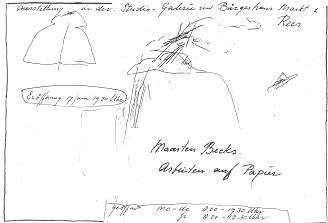 Ausstellung in der Studio-Galerie im Bürgerhaus Markt 1
Rees
Eröffnung 7 Juni 19.30 Uhr
Maarten Becks
Arbeiten auf Papier
geöffnet mo-do 8.00-19.30 Uhr
fr 8.00-12.30 Uhr